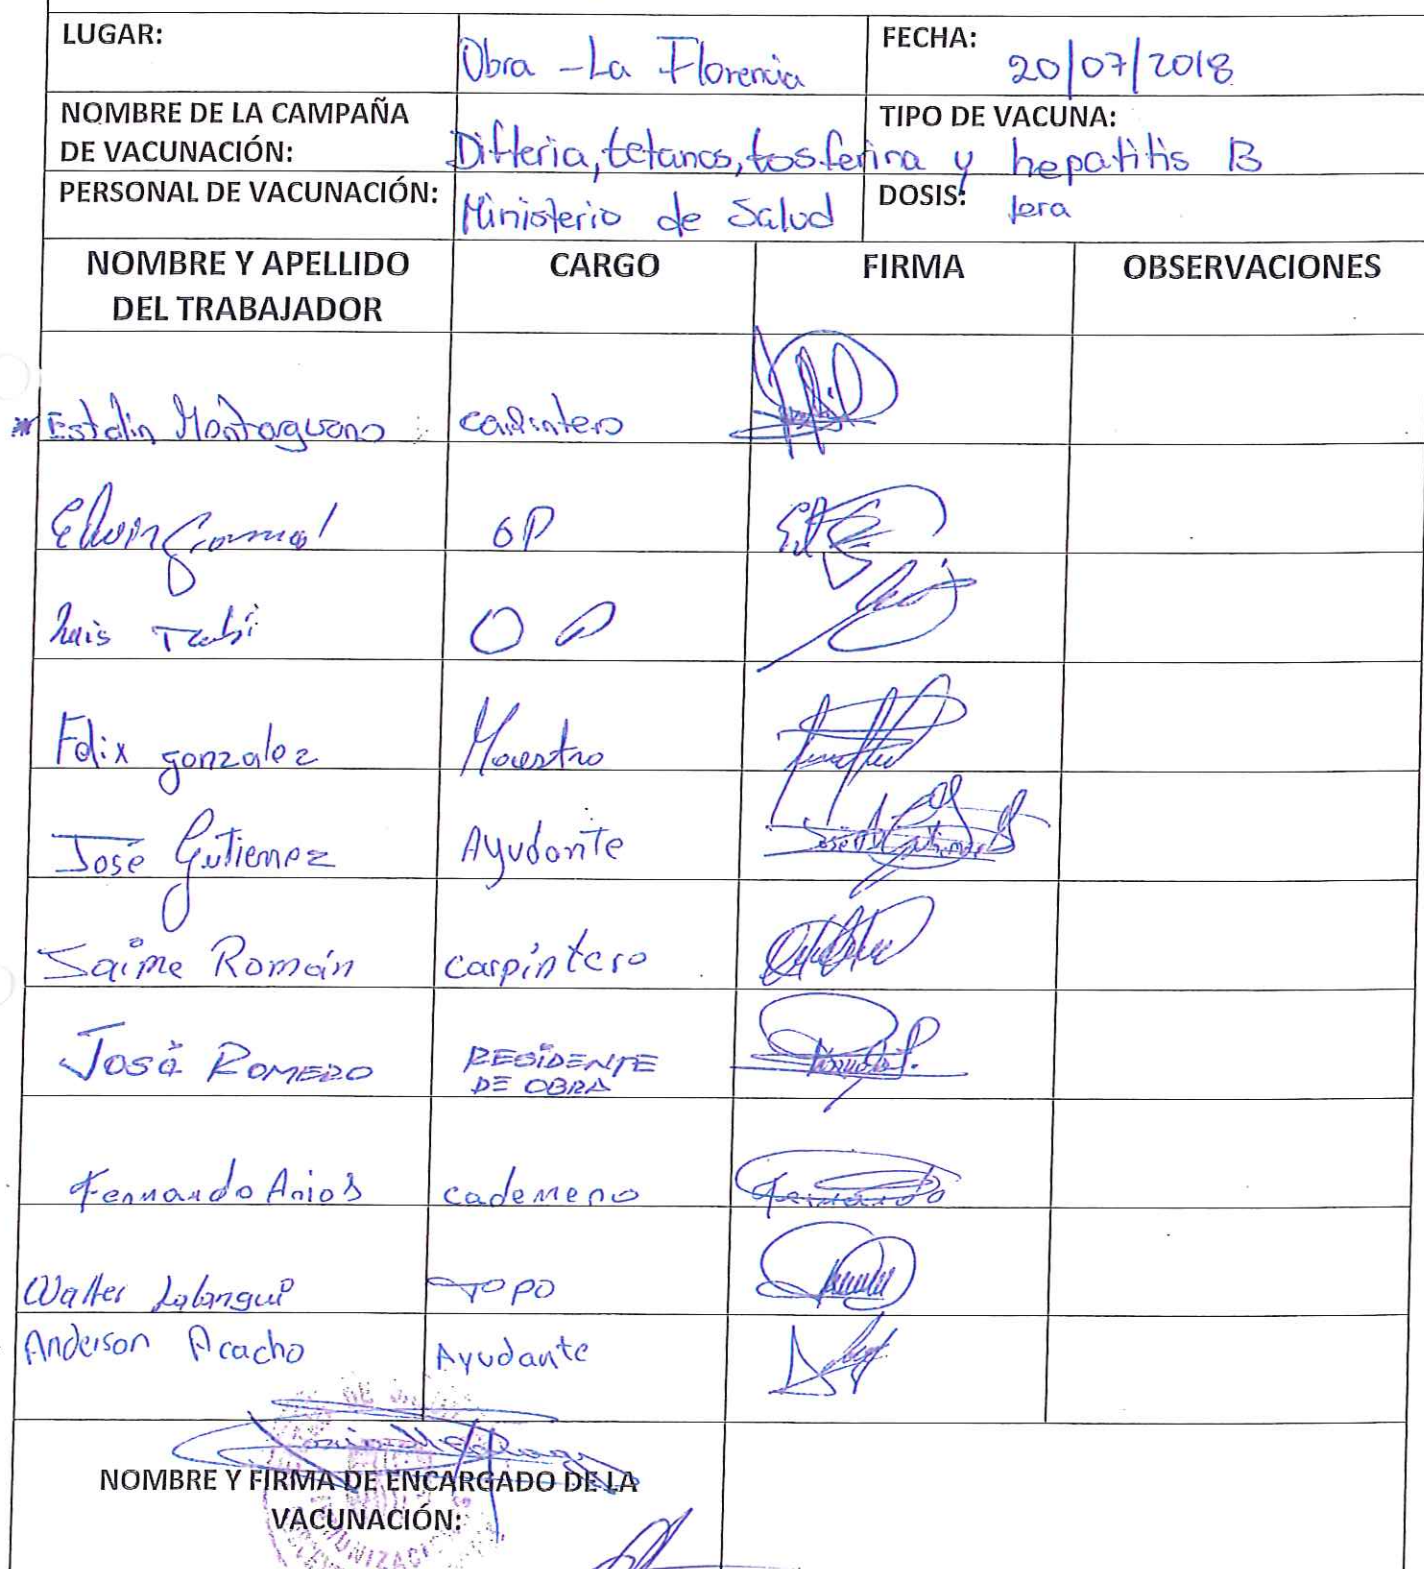 LUGAR: Obra - La Florencia FECHA: 20/07/2018
NOMBRE DE LA CAMPAÑA DE VACUNACIÓN: Difteria, tetanos, tosferina y hepatitis B TIPO DE VACUNA:
PERSONAL DE VACUNACIÓN: Ministerio de Salud DOSIS: 1era
NOMBRE Y APELLIDO DEL TRABAJADOR CARGO FIRMA OBSERVACIONES
Estalin Montaguano carpintero
Edwin OP
Luis OP
Felix gonzalez Maestro
José Gutierrez Ayudante
Jaime Román carpintero
José ROMERO RESIDENTE DE OBRA
Fernando Arias cadenero
Walter Lalangui TOPO
Anderson Acacho Ayudante
NOMBRE Y FIRMA DE ENCARGADO DE LA
VACUNACIÓN: